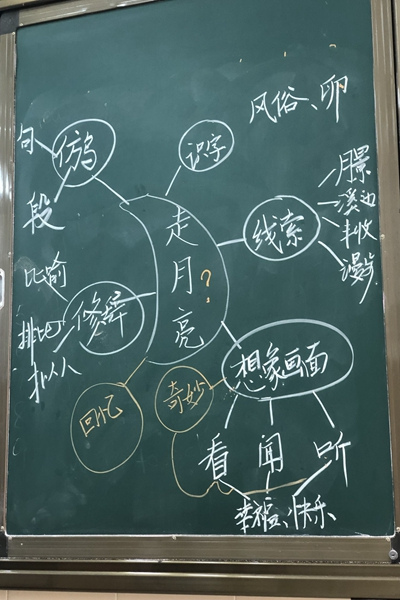 风俗、卵
句
仿写
识字
段
走月亮?
线索
月景
溪边
丰收
漫步
比喻
排比
拟人
修辞
回忆
奇妙
想象画面
看 闻 听
幸福、快乐